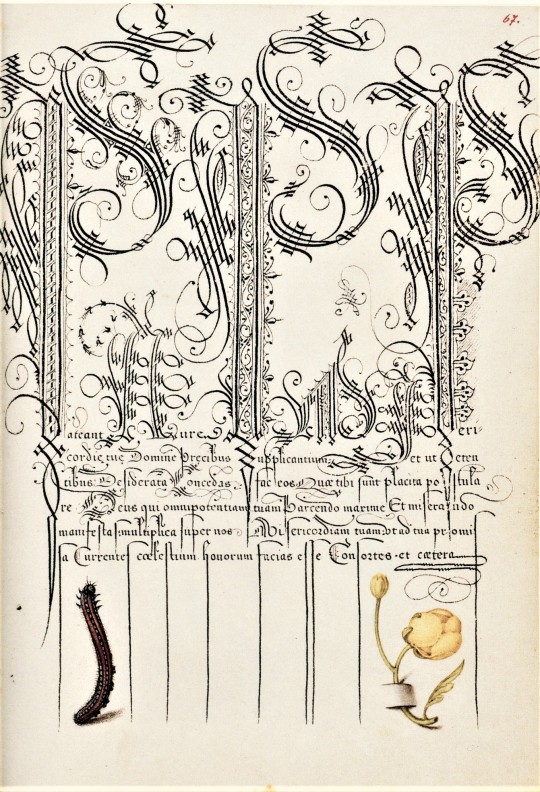 67.
Pateant Aures Miseri
cordię tuę Domine Precibus Supplicantium: et ut Peten
tibus Desiderata Concedas, fac eos Quæ tibi sunt placita postula
re Deus qui omnipotentiam tuam Parcendo maxime Et miserando
manifestas: multiplica super nos Misericordiam tuam: ut ad tua promis
sa Currentes cœlestium bonorum facias esse Consortes et cætera